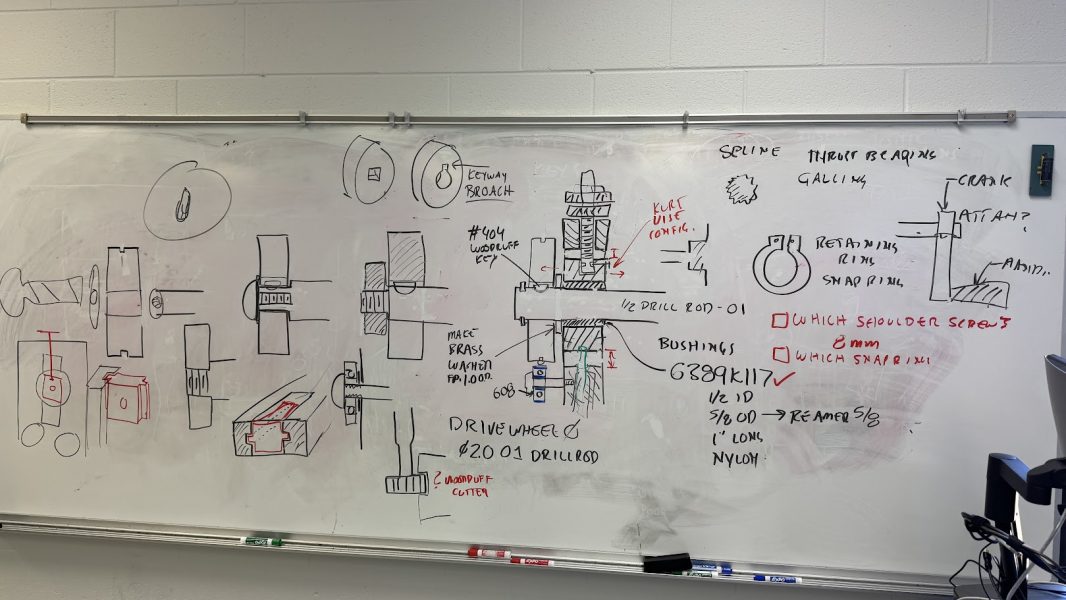 KEYWAY
BROACH
#404
WOODRUFF
KEY
KURT
VISE
CONFIG.
SPLINE
THRUST BEARING
GALLING
CRANK
RETAINING
RING
SNAP RING
1/2 DRILL ROD - 01
□ WHICH SHOULDER SCREWS
8mm
□ WHICH SNAP RING
MAKE
BRASS
608
BUSHINGS
6389K117 ✓
1/2 ID
5/8 OD → REAMER 5/8
1" LONG
NYLON
DRIVE WHEEL Ø
Ø2.0 01 DRILL ROD
? WOODRUFF
CUTTER